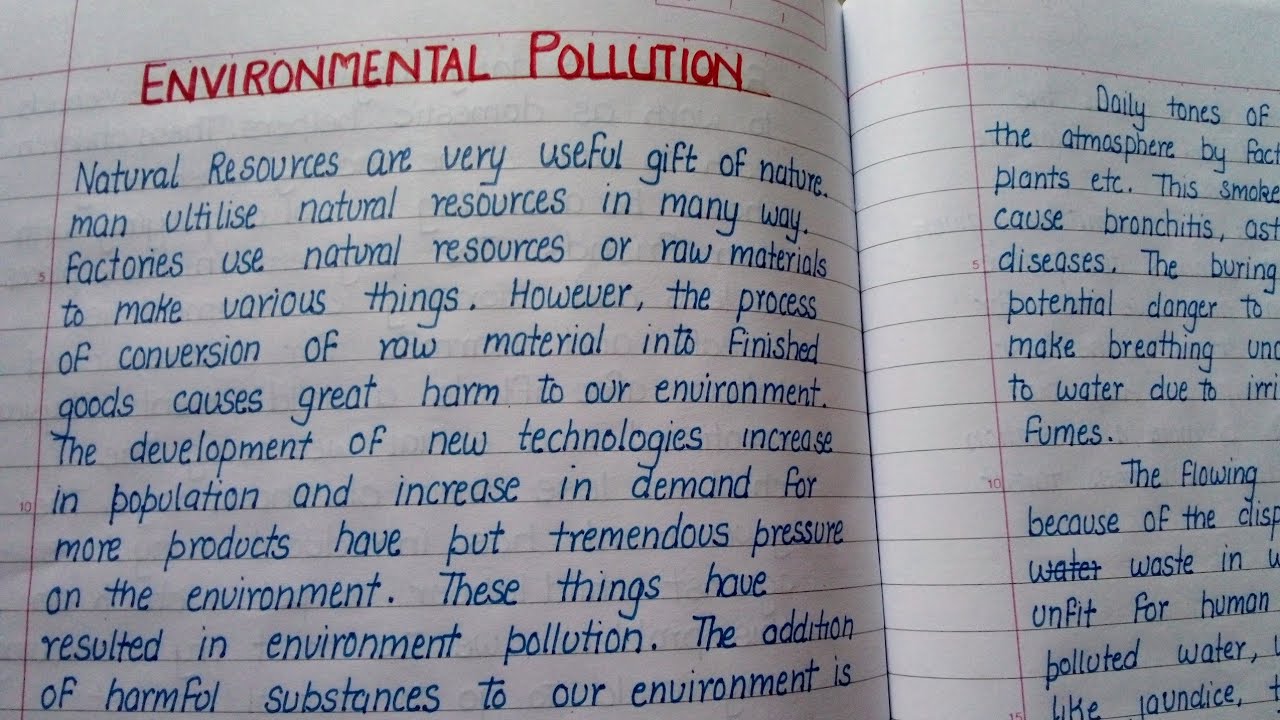 ENVIRONMENTAL POLLUTION
Natural Resources are very useful gift of nature.
man ultilise natural resources in many way.
Factories use natural resources or raw materials
to make various things. However, the process
of conversion of raw material into Finished
goods causes great harm to our environment.
The development of new technologies increase
in population and increase in demand for
more products have put tremendous pressure
on the environment. These things have
resulted in environment pollution. The addition
of harmful substances to our environment is
Daily tones of
the atmosphere by
plants etc. This smoke
cause bronchitis,
diseases. The buring
potential danger to
make breathing
to water due to
fumes.
The flowing
because of the
water waste in
unfit for human
polluted water,
like jaundice,